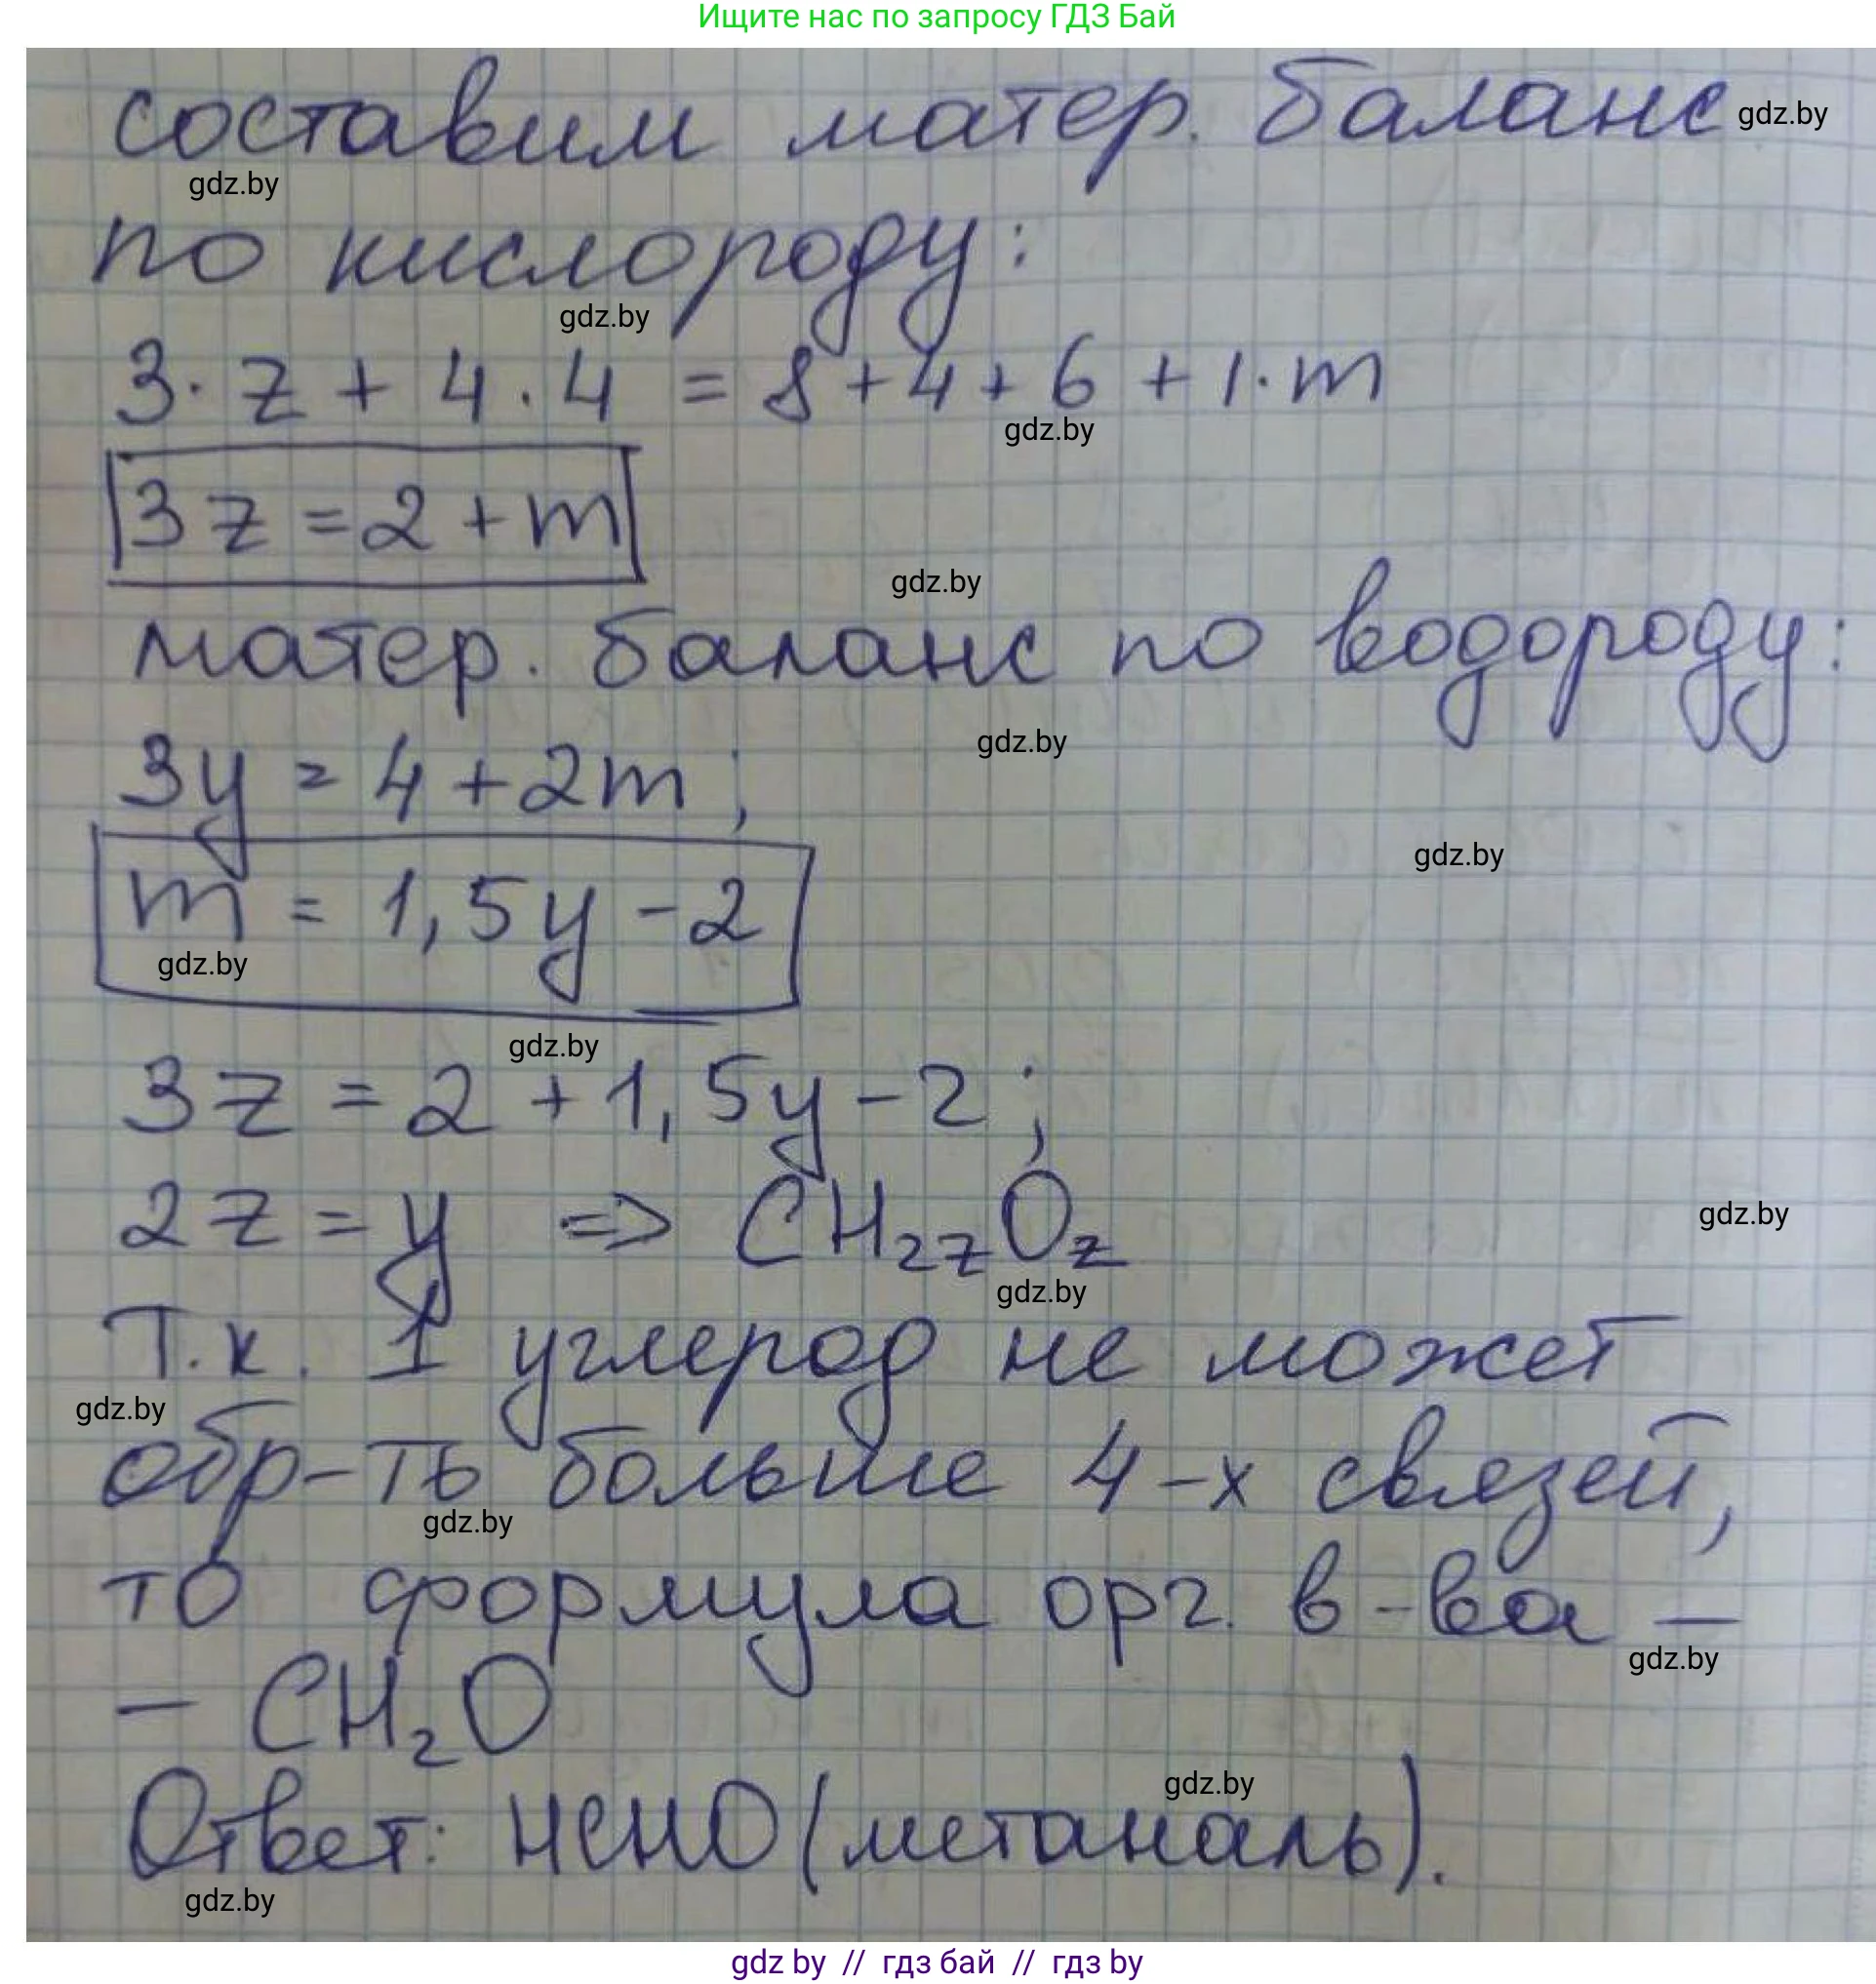 Ищите нас по запросу ГДЗ Бай
составим матер. баланс gdz.by
gdz.by
по кислороду:
gdz.by
3·z + 4·4 = 8+4+6+1·m
gdz.by
3z = 2+m
gdz.by
матер. баланс по водороду:
gdz.by
3y = 4+2m;
gdz.by
m = 1,5y-2
gdz.by
gdz.by
3z = 2+1,5y-2;
2z = y => CH₂zOz
gdz.by
gdz.by
Т.к. 1 углерод не может
gdz.by
обр-ть больше 4-х связей,
gdz.by
то формула орг. в-ва –
gdz.by
– CH₂O
gdz.by
Ответ: HCHO (метаналь).
gdz.by
gdz by // гдз бай // гдз by